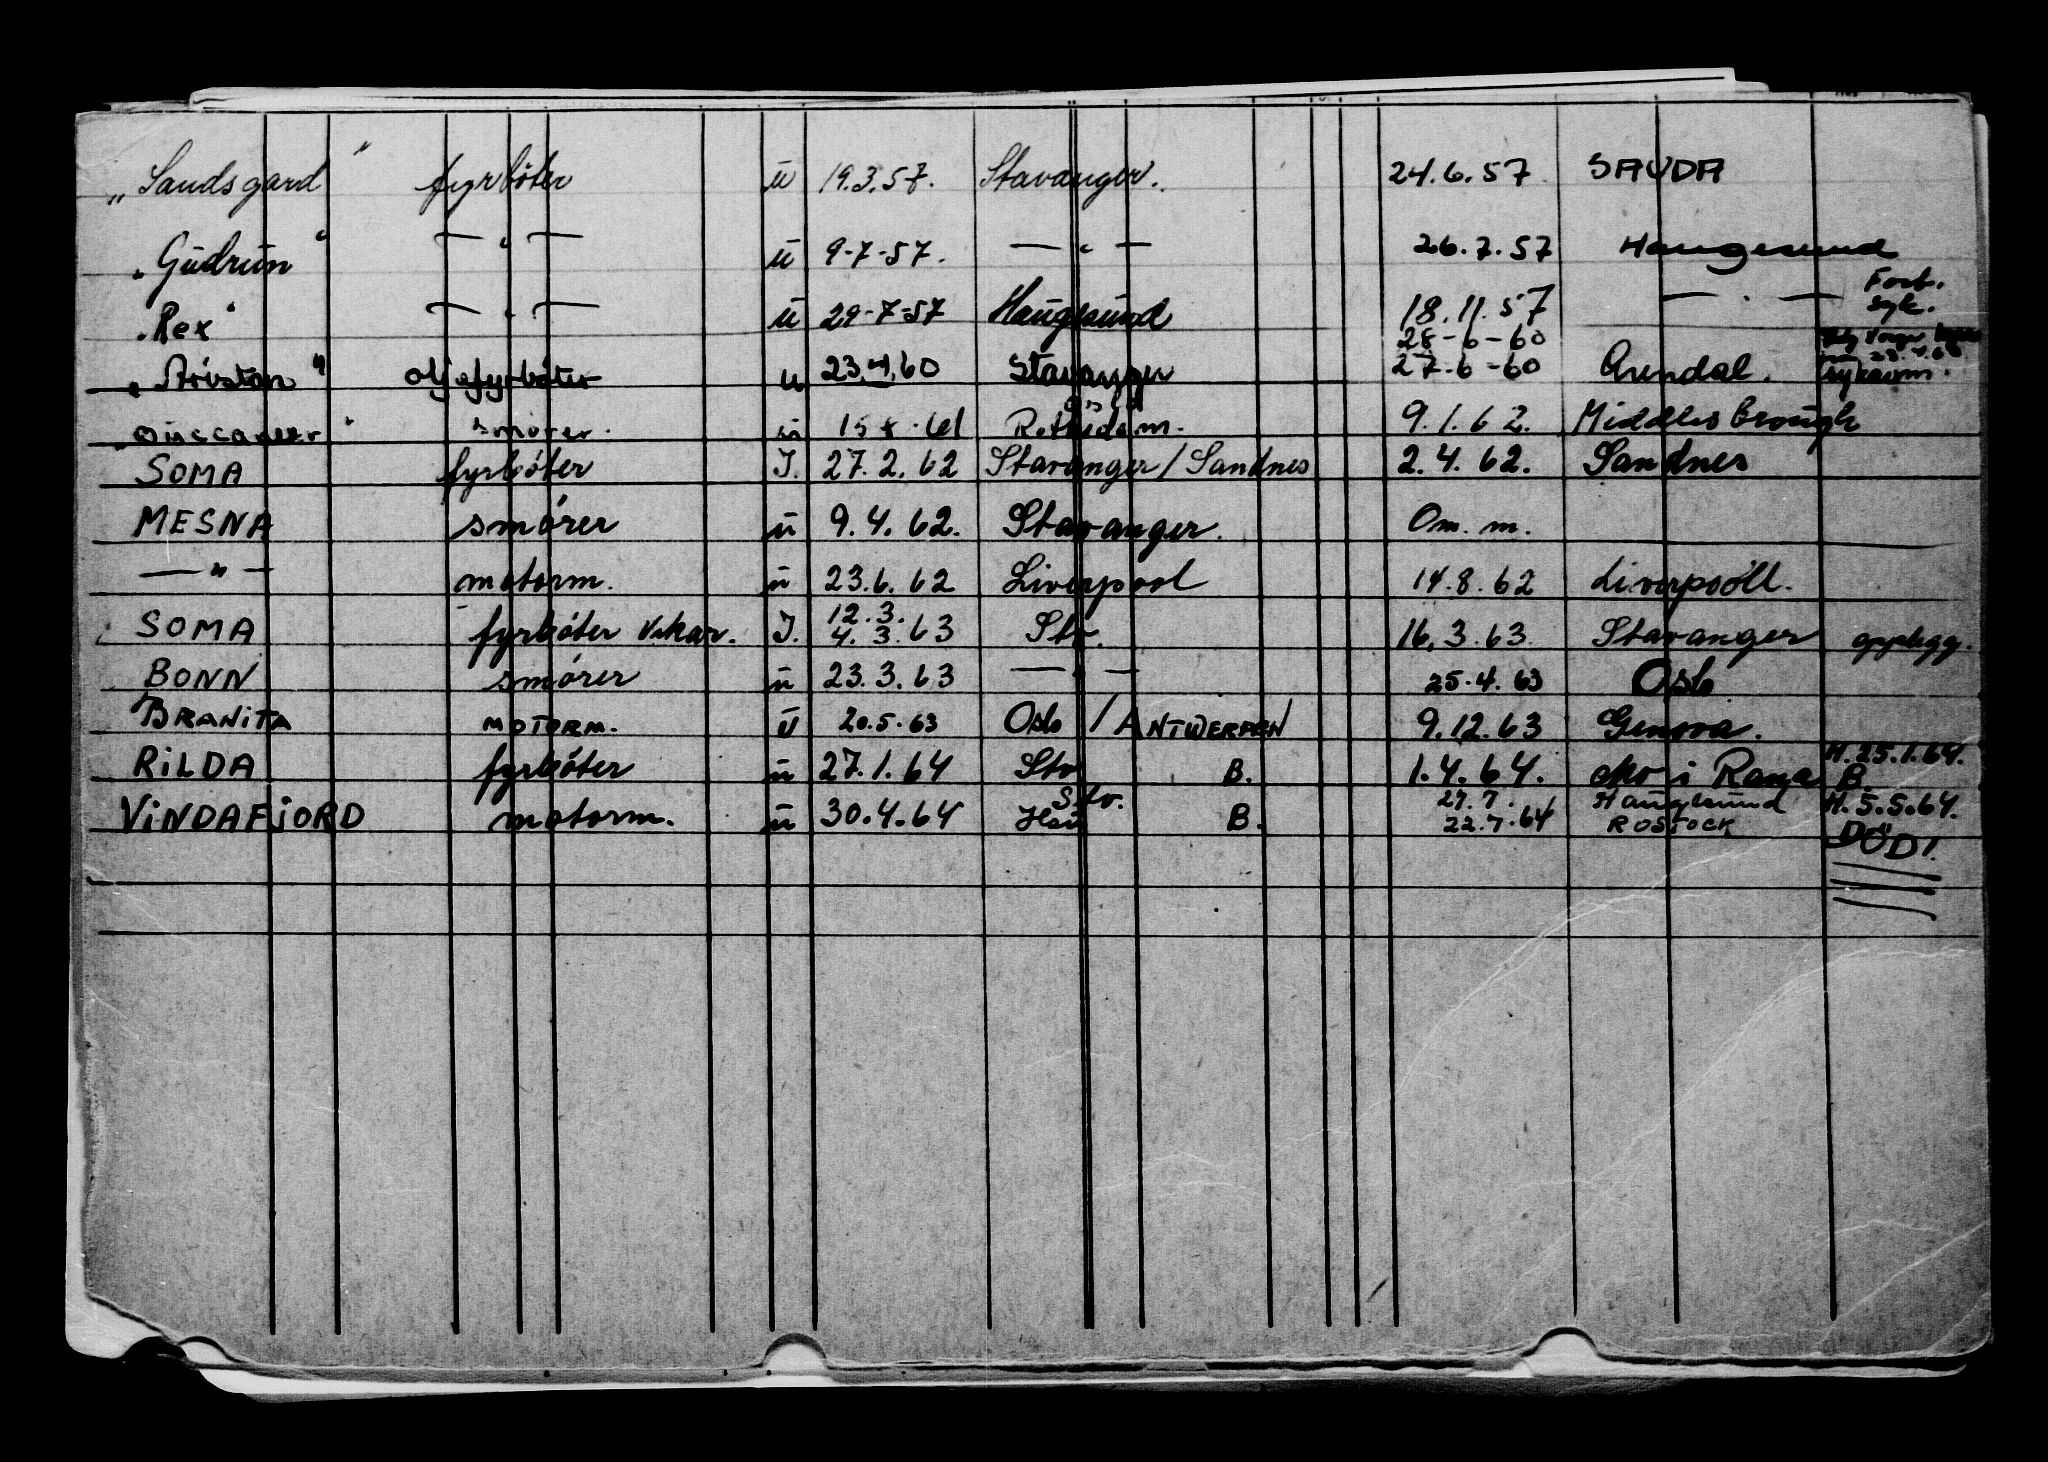 „Sandsgard" fyrböter ü 19.3.57. Stavanger. 24.6.57 SAUDA
„Gudrun" — " — ü 9-7-57. — " — 26.7.57 Haugesund
„Rex" — " — ü 29-7-57 Haugesund 18.11.57 — " — Forb. syk.
28-6-60
„Ariston" oljefyrböter u 23.4.60 Stavanger 27-6-60 Arendal. sykdom.
smörer. ü 15 8.61 Rotterdam. 9.1.62. Middlesbrough
SOMA fyrböter I. 27.2.62 Stavanger/Sandnes 2.4.62. Sandnes
MESNA smörer ü 9.4.62. Stavanger. Om. m.
— " — motorm. ü 23.6.62 Liverpool 14.8.62 Liverpoöll.
12.3.
SOMA fyrböter vikar. I. 4.3.63 Stv. 16.3.63 Stavanger opplegg.
BONN smörer ü 23.3.63 — " — 25.4.63 Oslo
BRANITA MOTORM. ü 20.5.63 Oslo / ANTWERPEN 9.12.63 Genova.
RILDA fyrböter ü 27.1.64 Stv B. 1.4.64. Mo i Rana H.25.1.64. B.
Stv. 27.7. Haugesund H.5.5.64.
VINDAFJORD motorm. ü 30.4.64 Hsü B. 22.7.64 ROSTOCK
DÖD!